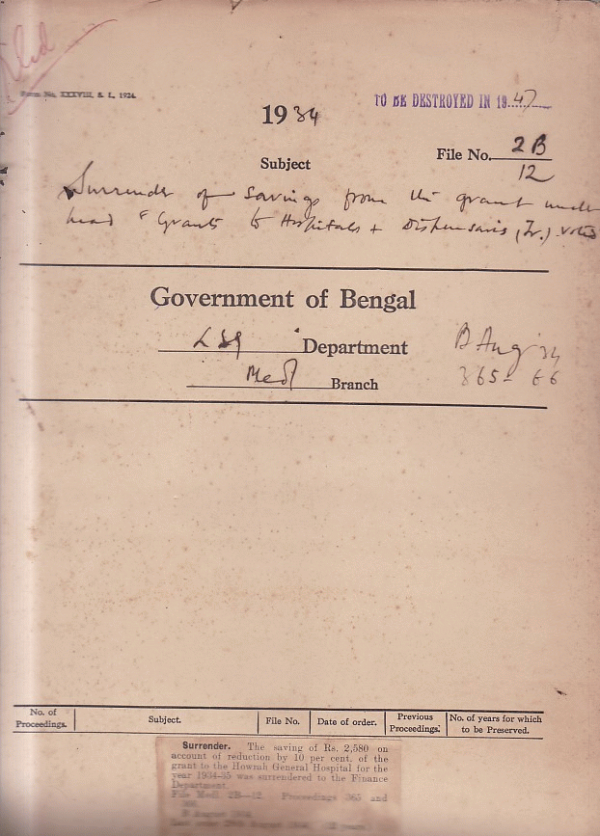 Filed
Form No. XXXVIII, S. I., 1924.
TO BE DESTROYED IN 1947
1934
File No. 2B
12
Subject
Surrender of savings from the grant under
head "Grants to Hospitals & Dispensaries (Tr.) Voted
Government of Bengal
LSG Department
Medl Branch
B Aug '34
365-66
No. of Proceedings. Subject. File No. Date of order. Previous Proceedings. No. of years for which to be Preserved.
Surrender. The saving of Rs. 2,580 on
account of reduction by 10 per cent. of the
grant to the Howrah General Hospital for the
year 1934-35 was surrendered to the Finance
Department.
File Medl. 2B—12. Proceedings 365 and
366.
B August 1934.
August